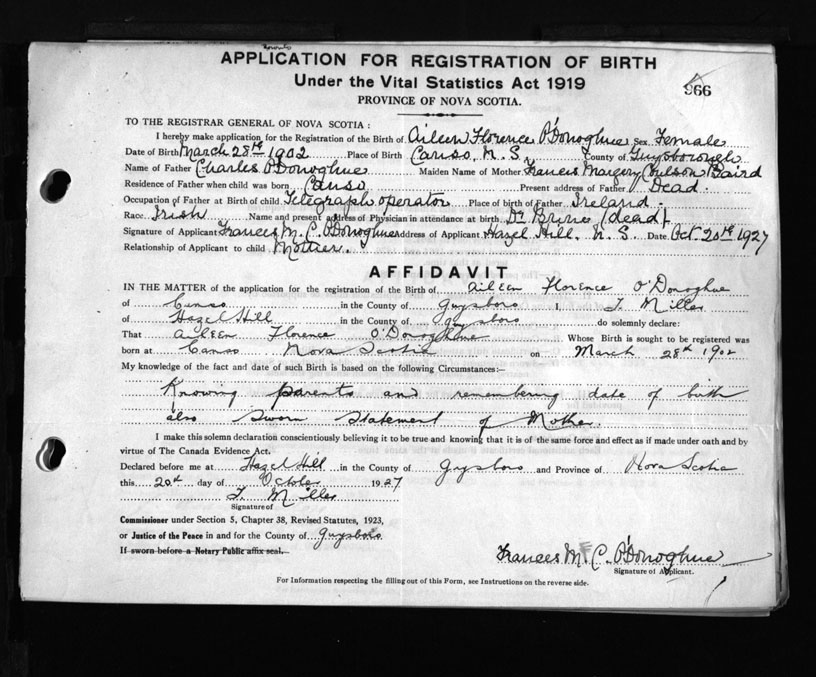 APPLICATION FOR REGISTRATION OF BIRTH
Under the Vital Statistics Act 1919
966
PROVINCE OF NOVA SCOTIA.
TO THE REGISTRAR GENERAL OF NOVA SCOTIA:
I hereby make application for the Registration of the Birth of Aileen Florence O'Donoghue Sex Female
Date of Birth March 28th 1902 Place of Birth Canso, N.S. County of Guysborough
Name of Father Charles O'Donoghue Maiden Name of Mother Frances Margery Coulson Baird
Residence of Father when child was born Canso Present address of Father Dead.
Occupation of Father at Birth of child Telegraph operator Place of birth of Father Ireland.
Race Irish Name and present address of Physician in attendance at birth Dr (dead)
Signature of Applicant Frances M. C. O'Donoghue Address of Applicant Hazel Hill. N.S Date Oct. 20th 1927
Relationship of Applicant to child Mother.
AFFIDAVIT
IN THE MATTER of the application for the registration of the Birth of Aileen Florence O'Donoghue
of Canso in the County of Guysboro I, T. Miller
of Hazel Hill in the County of Guysboro do solemnly declare:
That Aileen Florence O'Donoghue Whose Birth is sought to be registered was
born at Canso Nova Scotia on March 28th 1902
My knowledge of the fact and date of such Birth is based on the following Circumstances:—
Knowing parents and remembering date of birth
also sworn statement of Mother.
I make this solemn declaration conscientiously believing it to be true and knowing that it is of the same force and effect as if made under oath and by
virtue of The Canada Evidence Act.
Declared before me at Hazel Hill in the County of Guysboro and Province of Nova Scotia
this 20th day of October 1927
T. Miller
Signature of
Commissioner under Section 5, Chapter 38, Revised Statutes, 1923,
or Justice of the Peace in and for the County of Guysboro
If sworn before a Notary Public affix seal.
Frances M. C. O'Donoghue
Signature of Applicant.
For Information respecting the filling out of this Form, see Instructions on the reverse side.